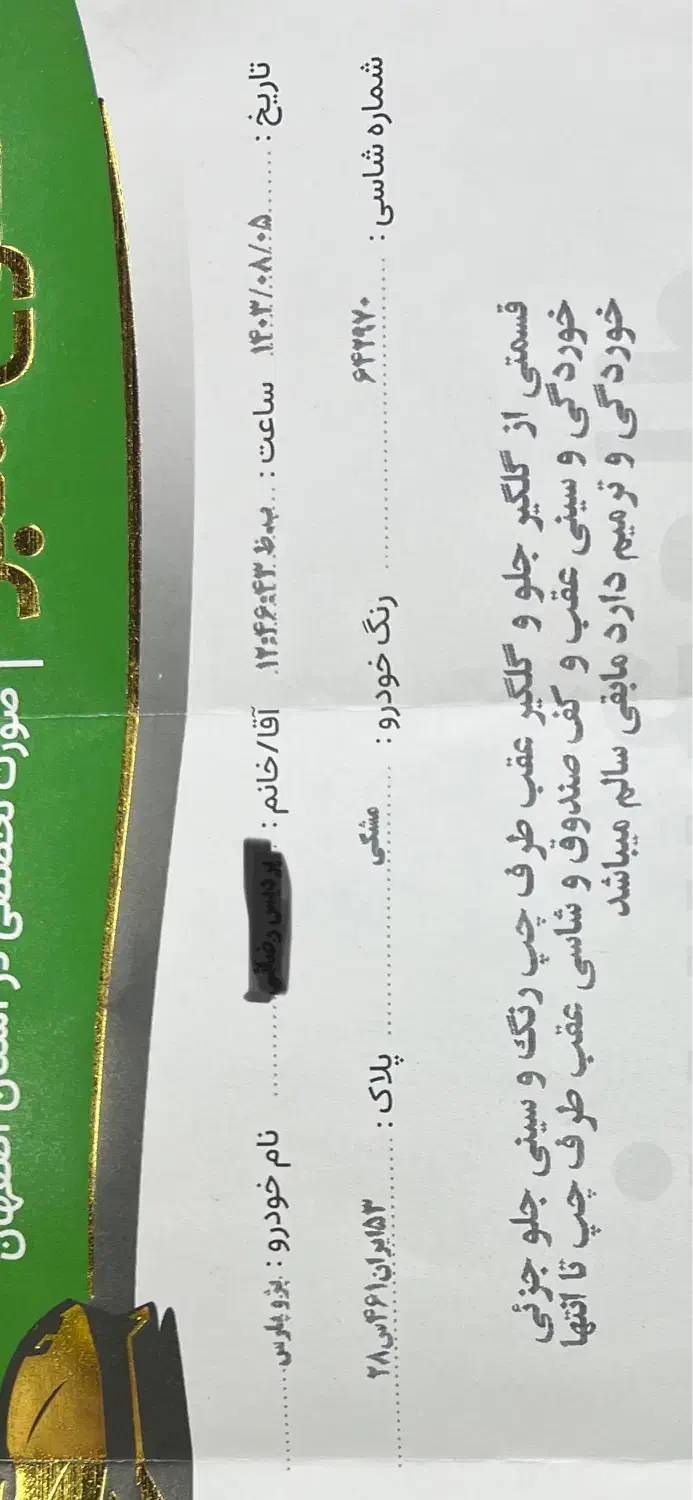 صورت تخصصی در استان اصفهان
تاریخ : ۱۴۰۳/۰۸/۰۵ ساعت : ۱۲:۴۶:۴۳ ب.ظ آقا/خانم : نام خودرو : پژو پارس
شماره شاسی : ۶۴۲۹۷۰ رنگ خودرو : مشکی پلاک : ۵۳ایران۴۶۱س۲۸
قسمتی از گلگیر جلو و گلگیر عقب طرف چپ رنگ و سینی جلو جزئی
خوردگی و سینی عقب و کف صندوق و شاسی عقب طرف چپ تا انتها
خوردگی و ترمیم دارد مابقی سالم میباشد